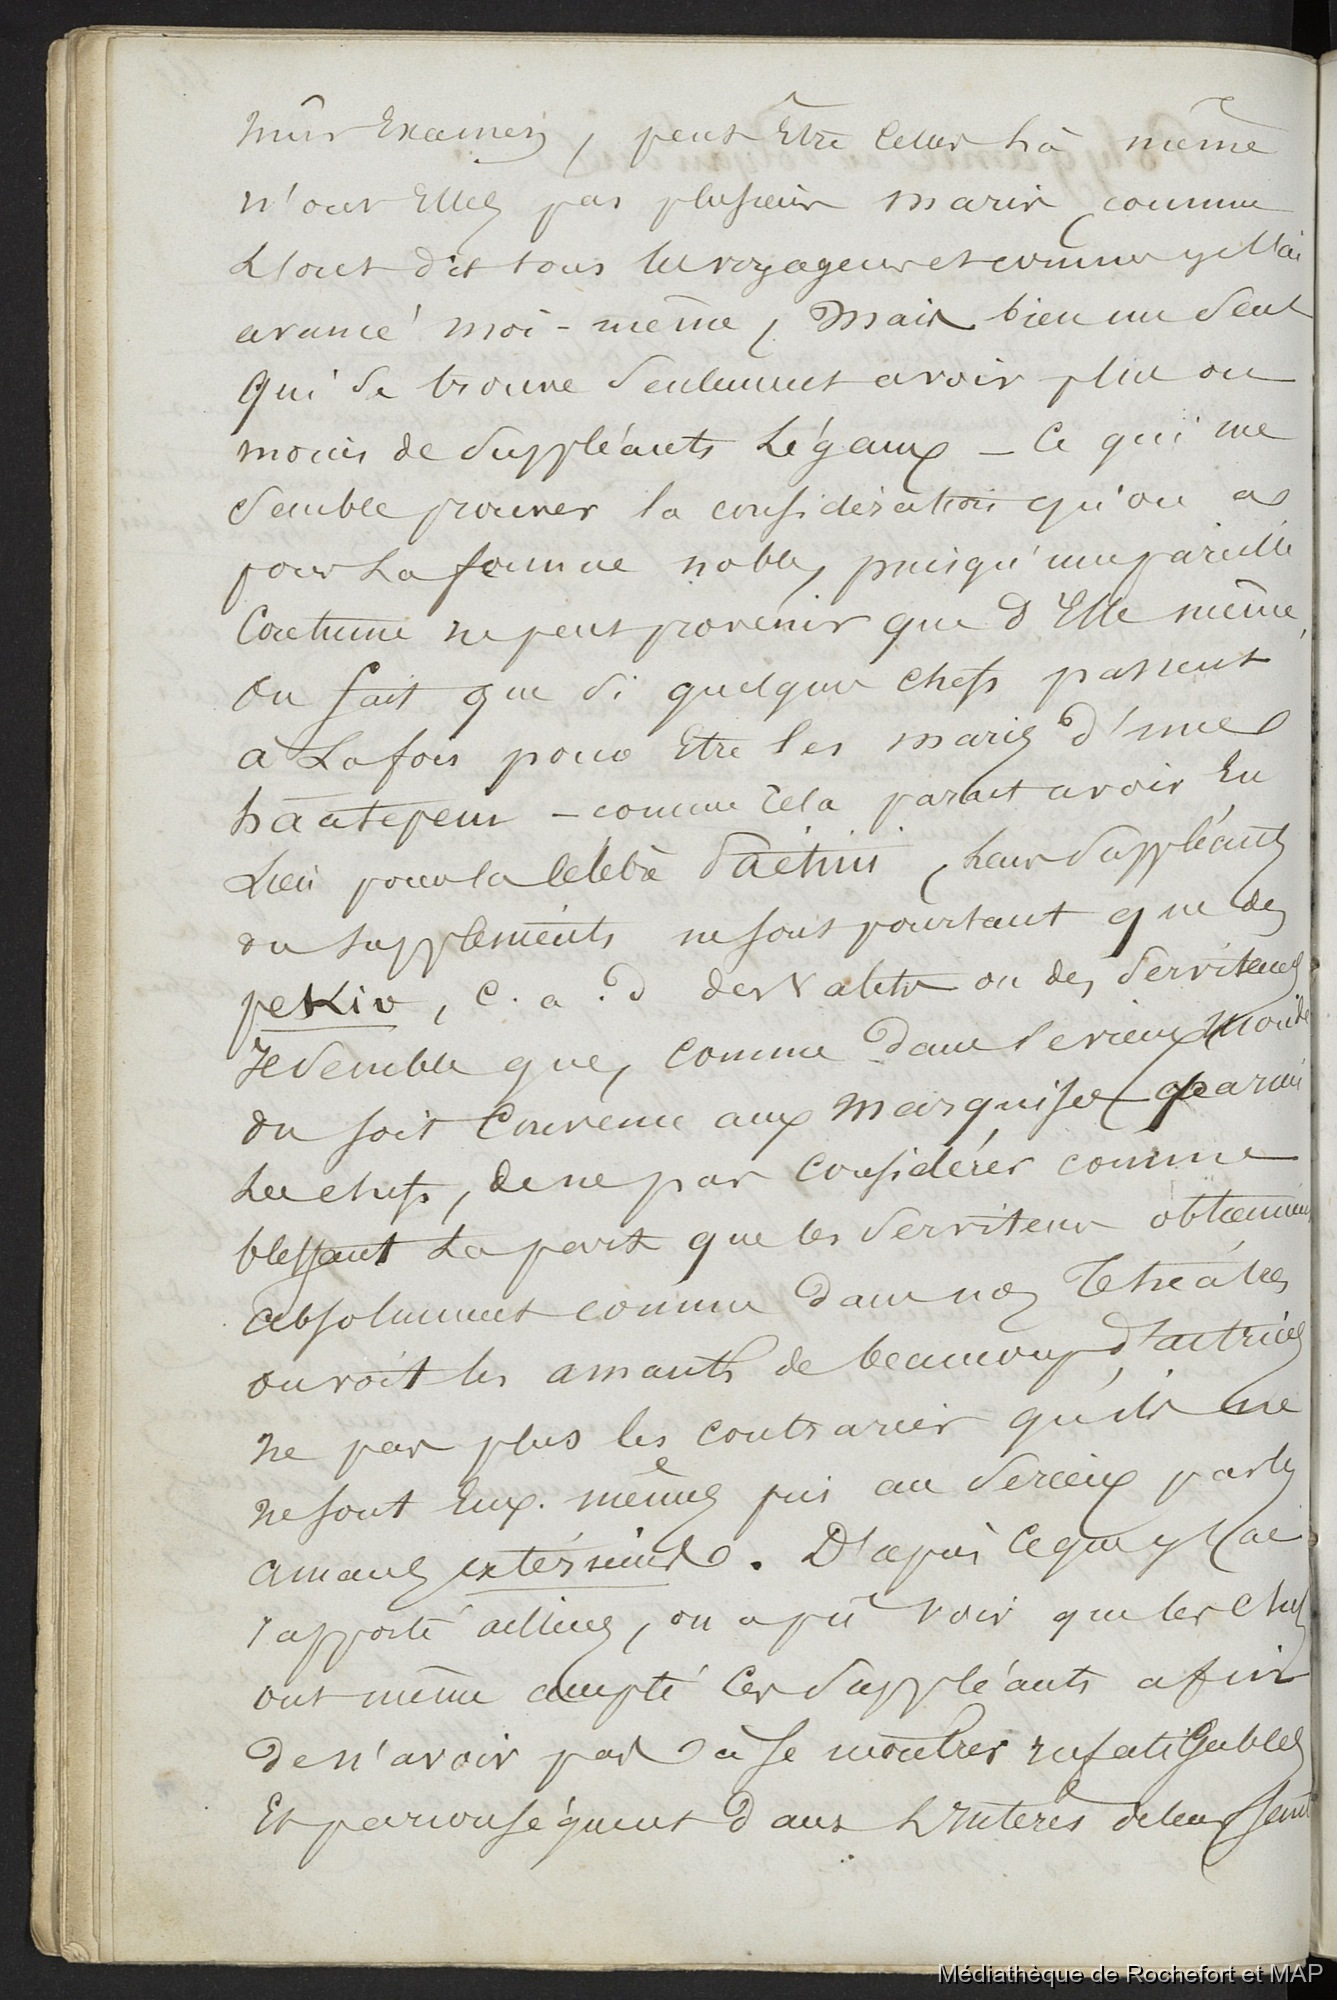 mûr Examen, peut Etre Celles là même
n'ont Elles pas plusieurs maris comme
L'ont dit tous les voyageurs et comme je l'ai
avancé moi-même, Mais bien un Seul
Qui Se trouve Seulement avoir plus ou
moins de Suppléants Légaux - Ce qui me
Semble prouver la considération qu'on a
pour La femme noble, puisqu'une pareille
Coutume ne peut provenir que d'Elle même,
On Sait que Si quelques chefs passent
à La fois pour Etre les maris d'une
haatepeiu - comme Cela parait avoir Eu
Lieu pour la Célèbre Paétini, Leurs Suppléants
ou supplements ne sont pourtant que des
pekio, c. a. d des Valets ou des Serviteurs
Il Semble que, comme dans le vieux Monde
on soit Convenu aux Marquises parmi
Les chefs, de ne pas Considérer comme
blessant La part que les Serviteurs obtiennent
absolument comme dans nos Théâtres
on voit les amants de beaucoup d'actrices
ne pas plus les contrarier qu'ils ne
ne sont Eux-mêmes pris au Serieux par les
amants extérieurs. D'après Ce que j'ai
rapporté ailleurs, on a pu voir que les chefs
ont même accepté Ces Suppléants afin
de n'avoir pas à Se montrer infatigables
Et par conséquent dans L'Intérès de leur Santé
Médiathèque de Rochefort et MAP